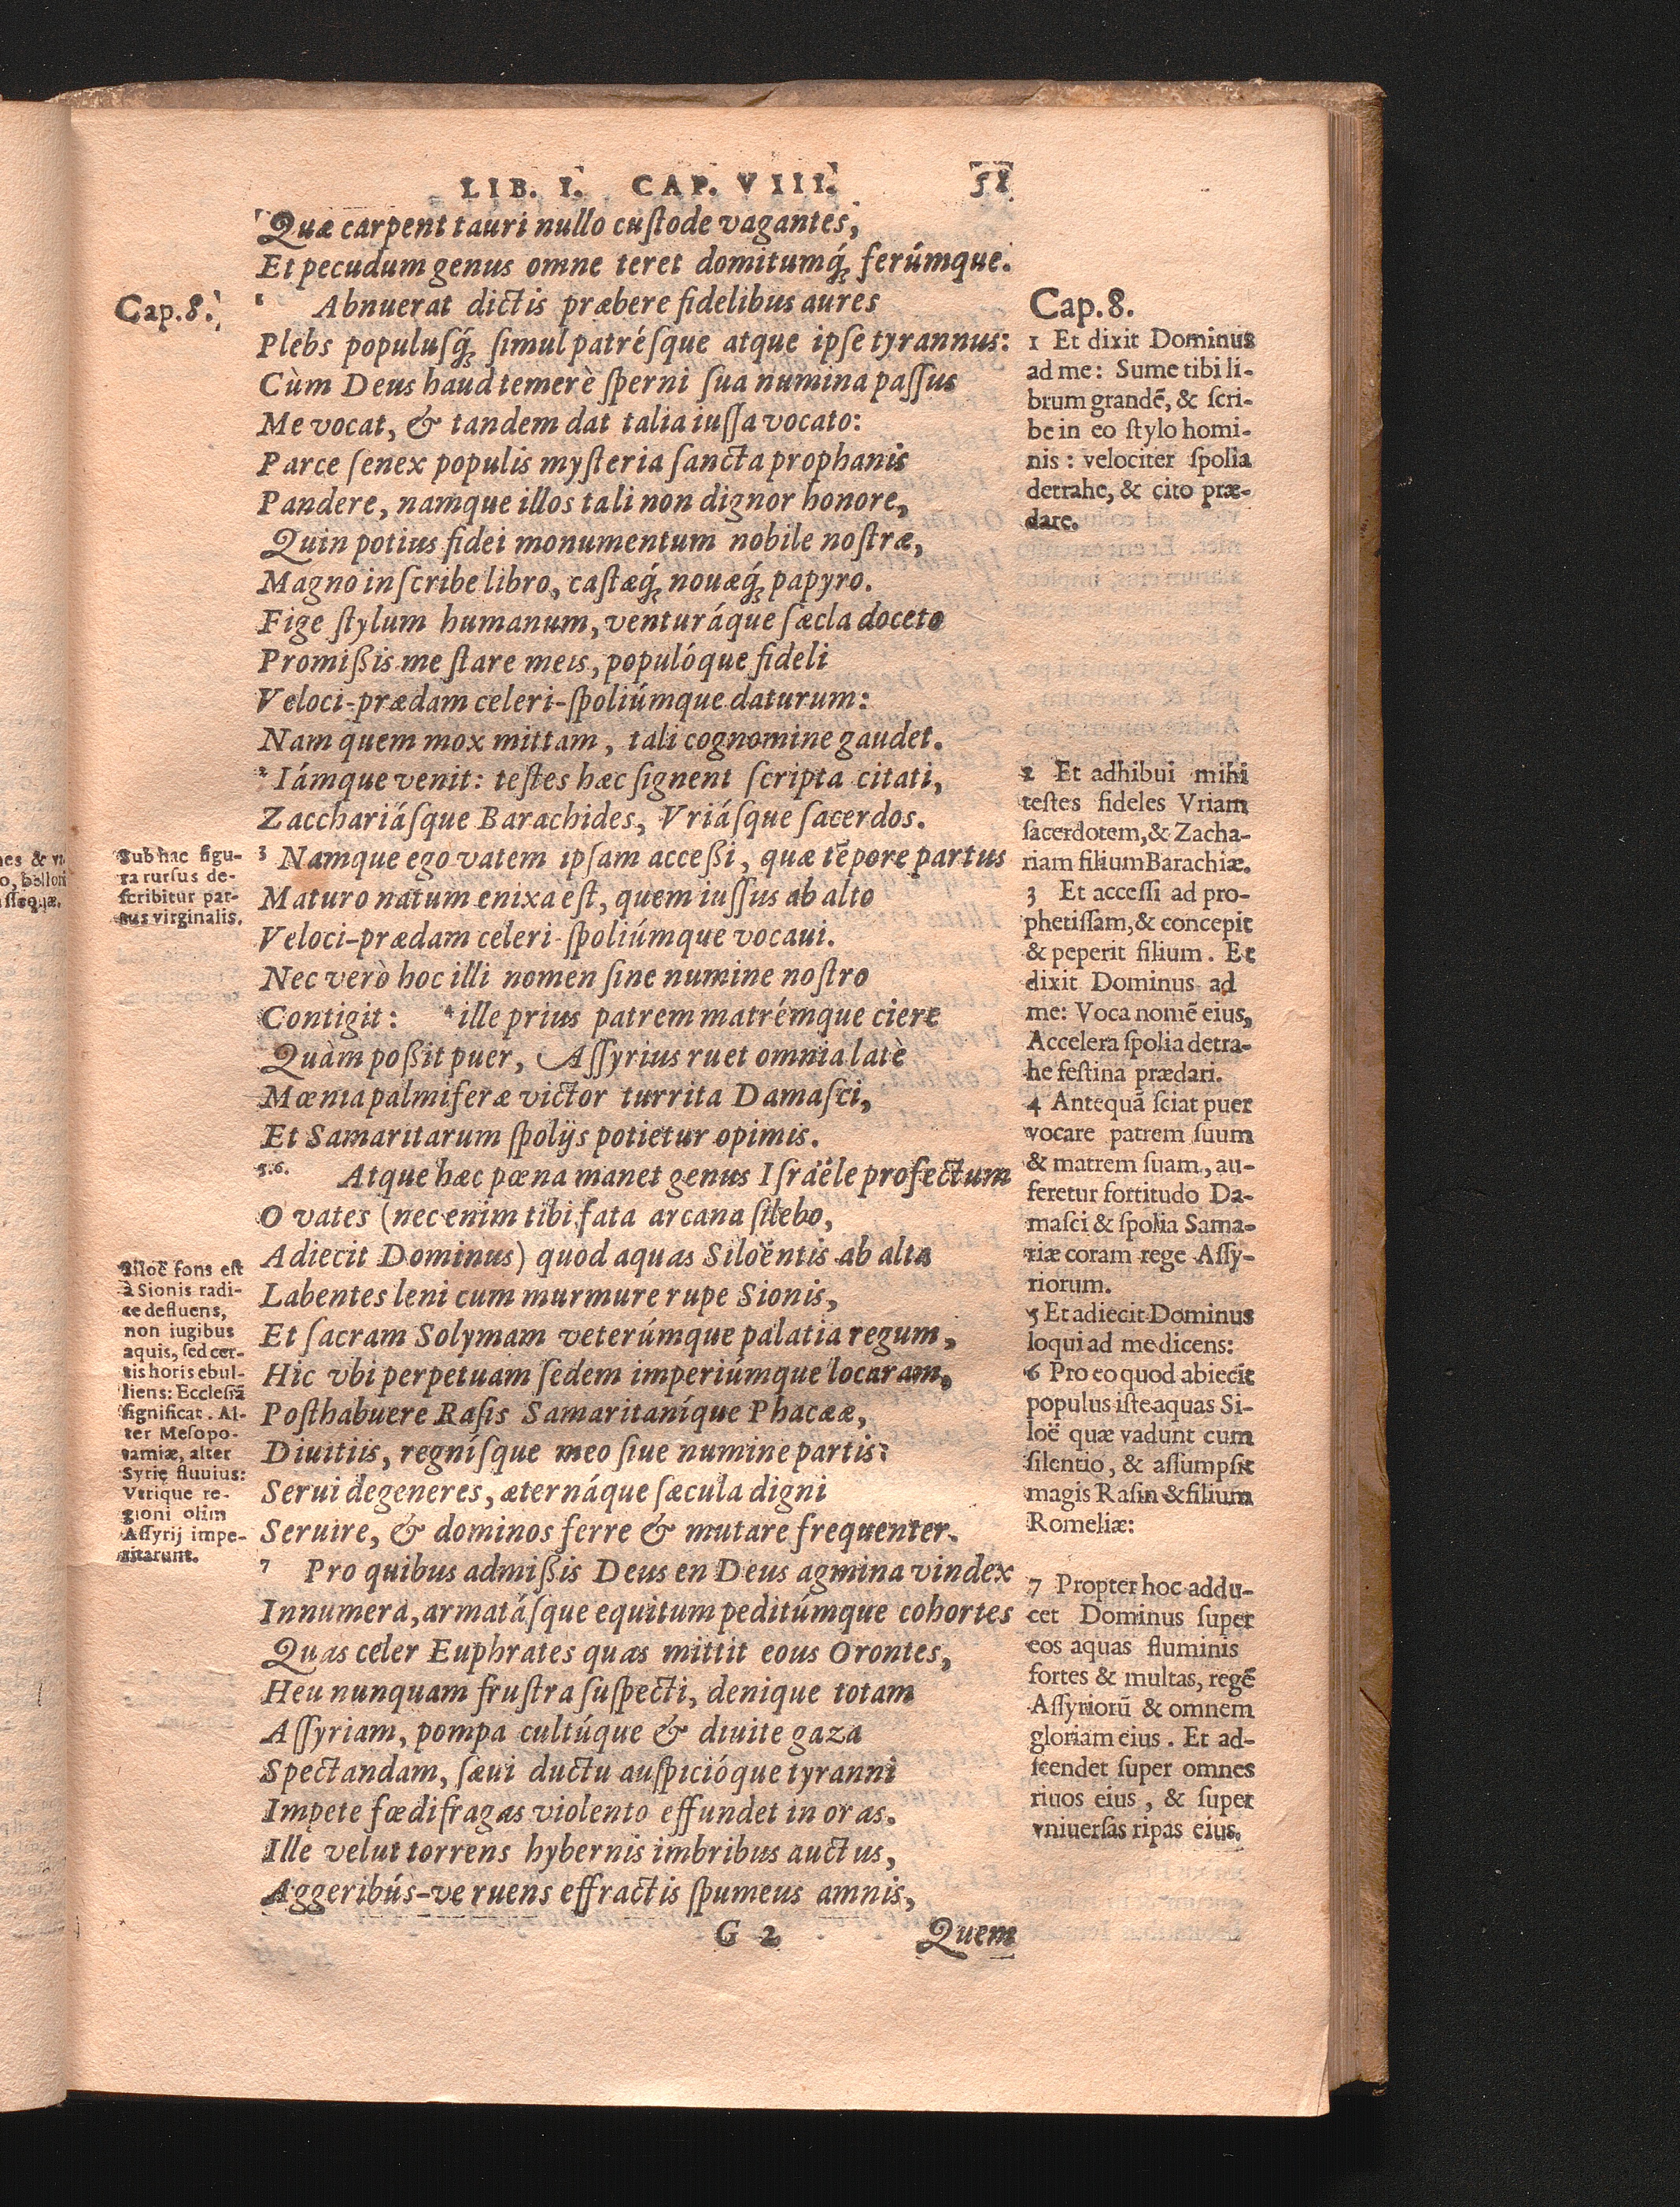 LIB. I. CAP. VIII. 51
Quæ carpent tauri nullo cuſtode vagantes,
Et pecudum genus omne teret domitumq́; ferúmque.
Cap.8.
1 Abnuerat dictis præbere fidelibus aures
Plebs populuſq́; ſimul patréſque atque ipſe tyrannus:
Cùm Deus haud temerè ſperni ſua numina paſſus
Me vocat, & tandem dat talia iuſſa vocato:
Parce ſenex populis myſteria ſancta prophanis
Pandere, namque illos tali non dignor honore,
Quin potius fidei monumentum nobile noſtræ,
Magno inſcribe libro, caſtæq́; nouæq́; papyro.
Fige ſtylum humanum, venturáque ſæcla doceto
Promißis me ſtare meis, populóque fideli
Veloci-prædam celeri-ſpoliúmque daturum:
Nam quem mox mittam, tali cognomine gaudet.
2 Iámque venit: teſtes hæc ſignent ſcripta citati,
Zacchariáſque Barachides, Vriáſque ſacerdos.
3 Namque ego vatem ipſam acceßi, quæ tẽpore partus
Maturo natum enixa eſt, quem iuſſus ab alto
Veloci-prædam celeri-ſpoliúmque vocaui.
Nec verò hoc illi nomen ſine numine noſtro
Contigit: 4 ille prius patrem matrémque ciere
Quàm poßit puer, Aſſyrius ruet omnia latè
Mœnia palmiferæ victor turrita Damaſci,
Et Samaritarum ſpolijs potietur opimis.
5.6. Atque hæc pœna manet genus Iſraële profectum
O vates (nec enim tibi fata arcana ſilebo,
Adiecit Dominus) quod aquas Siloëntis ab alta
Labentes leni cum murmure rupe Sionis,
Et ſacram Solymam veterúmque palatia regum,
Hic vbi perpetuam ſedem imperiúmque locaram,
Poſthabuere Raſis Samaritaníque Phacææ,
Diuitiis, regníſque meo ſiue numine partis:
Serui degeneres, æternáque ſæcula digni
Seruire, & dominos ferre & mutare frequenter.
7 Pro quibus admißis Deus en Deus agmina vindex
Innumera, armatáſque equitum peditúmque cohortes
Quas celer Euphrates quas mittit eous Orontes,
Heu nunquam fruſtra ſuſpecti, denique totam
Aſſyriam, pompa cultúque & diuite gaza
Spectandam, ſæui ductu auſpicióque tyranni
Impete fœdifragas violento effundet in oras.
Ille velut torrens hybernis imbribus auctus,
Aggeribús-ve ruens effractis ſpumeus amnis,
G 2 Quem
Sub hac figu-
ra rurſus de-
ſcribitur par-
tus virginalis.
Siloë fons eſt
à Sionis radi-
ce defluens,
non iugibus
aquis, ſed cer-
tis horis ebul-
liens: Eccleſiã
ſignificat. Al-
ter Meſopo-
tamiæ, alter
Syrię fluuius:
Vtrique re-
gioni olim
Aſſyrij impe-
ritarunt.
Cap.8.
1 Et dixit Dominus
ad me: Sume tibi li-
brum grandẽ, & ſcri-
be in eo ſtylo homi-
nis: velociter ſpolia
detrahe, & cito præ-
dare.
2 Et adhibui mihi
teſtes fideles Vriam
ſacerdotem, & Zacha-
riam filium Barachiæ.
3 Et acceſſi ad pro-
phetiſſam, & concepit
& peperit filium. Et
dixit Dominus ad
me: Voca nomẽ eius,
Accelera ſpolia detra-
he feſtina prædari.
4 Antequã ſciat puer
vocare patrem ſuum
& matrem ſuam, au-
feretur fortitudo Da-
maſci & ſpolia Sama-
riæ coram rege Aſſy-
riorum.
5 Et adiecit Dominus
loqui ad me dicens:
6 Pro eo quod abiecit
populus iſte aquas Si-
loë quæ vadunt cum
ſilentio, & aſſumpſit
magis Raſin & filium
Romeliæ:
7 Propter hoc addu-
cet Dominus ſuper
eos aquas fluminis
fortes & multas, regẽ
Aſſyriorũ & omnem
gloriam eius. Et ad-
ſcendet ſuper omnes
riuos eius, & ſuper
vniuerſas ripas eius.